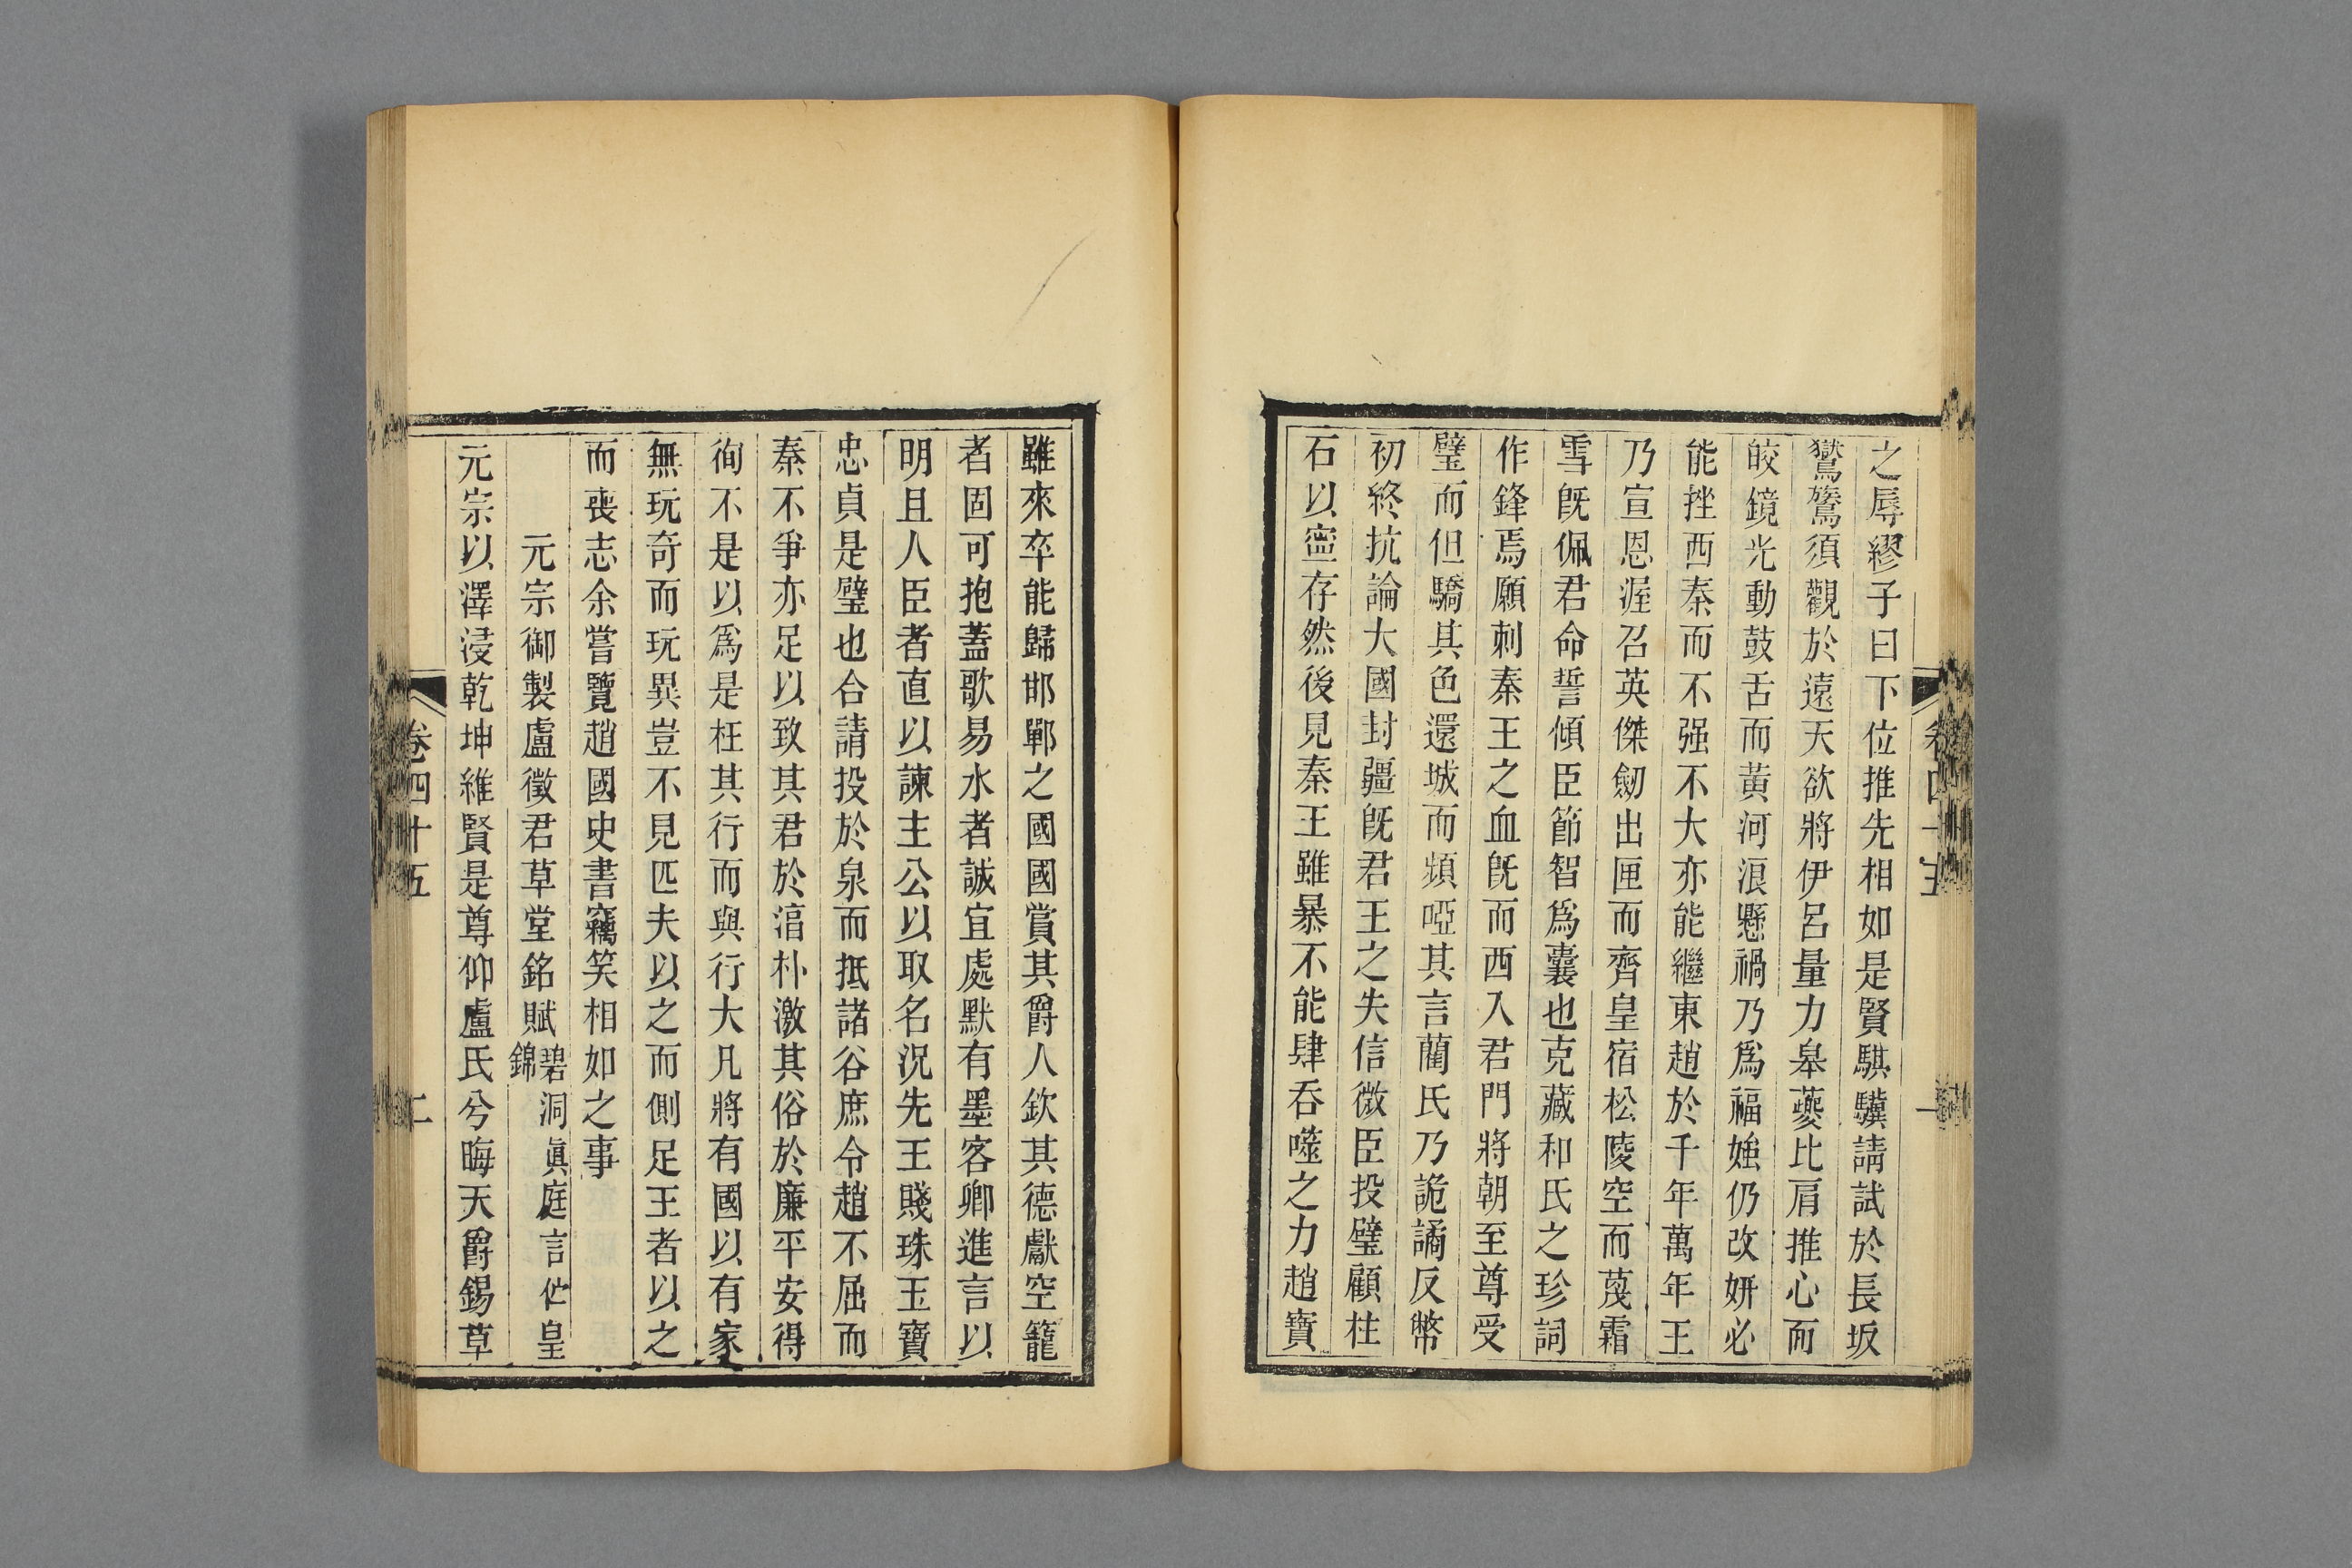 之辱繆子曰下位推先相如是賢騏驥請試於長坂
鸑鷟須觀於遠天欲將伊呂量力皋夔比肩推心而
皎鏡光動鼓舌而黃河浪懸禍乃爲福媸仍改妍必
能挫西秦而不强不大亦能繼東趙於千年萬年王
乃宣恩渥召英傑劒出匣而齊皇宿松陵空而蔑霜
雪旣佩君命誓傾臣節智爲囊也克藏和氏之珍詞
作鋒焉願刺秦王之血旣而西入君門將朝至尊受
璧而但驕其色還城而頻啞其言藺氏乃詭譎反幣
初終抗論大國封疆旣君王之失信微臣投璧顧柱
石以寧存然後見秦王雖暴不能肆吞噬之力趙寶
雖來卒能歸邯鄲之國國賞其爵人欽其德獻空籠
者固可抱蓋歌易水者誠宜處默有墨客卿進言以
明且人臣者直以諫主公以取名況先王賤珠玉寶
忠貞是璧也合請投於泉而抵諸谷庶令趙不屈而
秦不爭亦足以致其君於涫朴激其俗於廉平安得
徇不是以爲是枉其行而與行大凡將有國以有家
無玩奇而玩異豈不見匹夫以之而側足王者以之
而喪志余嘗覽趙國史書竊笑相如之事
元宗御製盧徵君草堂銘賦碧洞眞庭言伫皇
錦
元宗以澤浸乾坤維賢是尊仰盧氏兮晦天爵錫草
卷四十五
二